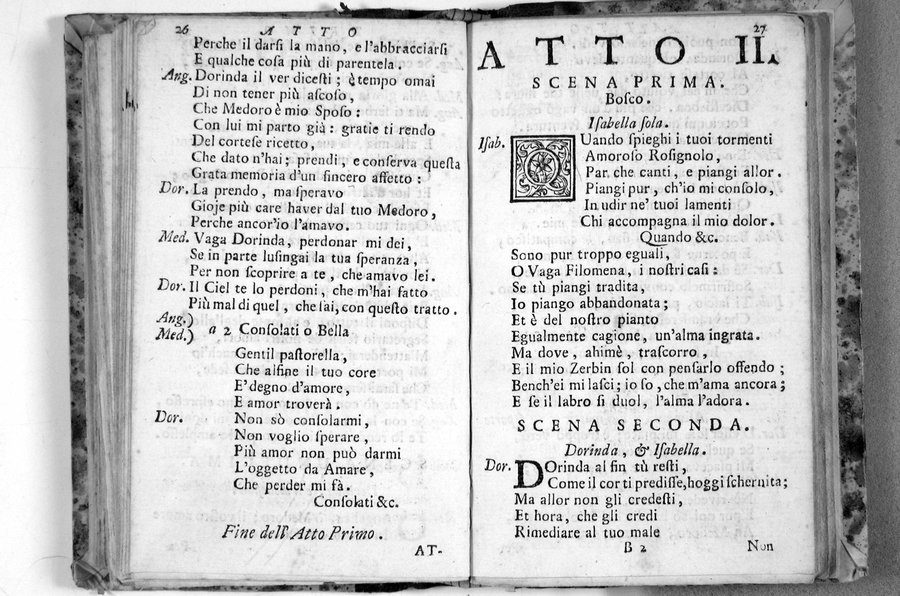 26 ATTO
Perche il darſi la mano, e l'abbracciarſi
E qualche coſa più di parentela.
Ang. Dorinda il ver diceſti; è tempo omai
Di non tener più aſcoſo,
Che Medoro è mio Spoſo:
Con lui mi parto già: gratie ti rendo
Del corteſe ricetto,
Che dato n'hai; prendi, e conſerva queſta
Grata memoria d'un ſincero affetto:
Dor. La prendo, ma ſperavo
Gioje più care haver dal tuo Medoro,
Perche ancor'io l'amavo.
Med. Vaga Dorinda, perdonar mi dei,
Se in parte luſingai la tua ſperanza,
Per non ſcoprire a te, che amavo lei.
Dor. Il Ciel te lo perdoni, che m'hai fatto
Più mal di quel, che ſai, con queſto tratto.
Ang.)
Med.) a 2 Conſolati o Bella
Gentil paſtorella,
Che alfine il tuo core
E' degno d'amore,
E amor troverà.
Dor. Non sò conſolarmi,
Non voglio ſperare,
Più amor non può darmi
L'oggetto da Amare,
Che perder mi fà.
Conſolati &c.
Fine dell' Atto Primo.
AT-
27
ATTO II.
SCENA PRIMA.
Boſco.
Iſabella ſola.
Iſab. QUando ſpieghi i tuoi tormenti
Amoroſo Roſignolo,
Par che canti, e piangi allor.
Piangi pur, ch'io mi conſolo,
In udir ne' tuoi lamenti
Chi accompagna il mio dolor.
Quando &c.
Sono pur troppo eguali,
O Vaga Filomena, i noſtri caſi:
Se tù piangi tradita,
Io piango abbandonata;
Et è del noſtro pianto
Egualmente cagione, un'alma ingrata.
Ma dove, ahimè, traſcorro,
E il mio Zerbin ſol con penſarlo offendo;
Bench'ei mi laſci; io ſo, che m'ama ancora;
E ſe il labro ſi duol, l'alma l'adora.
SCENA SECONDA.
Dorinda, & Iſabella.
Dor. DOrinda al fin tù reſti,
Come il cor ti prediſſe, hoggi ſchernita;
Ma allor non gli credeſti,
Et hora, che gli credi
Rimediare al tuo male
B 2 Non